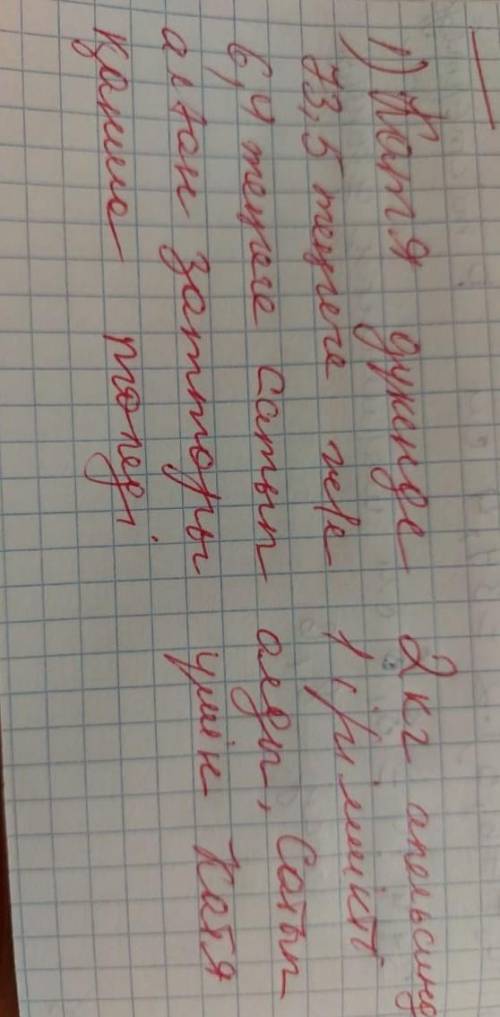 1) Катя дүкенде 2 кг апельсинд
73,5 теңгеге және 1 ірімшікті
6,4 теңгеге сатып алды. Сатып
алған заттары үшін Катя
қанша төледі